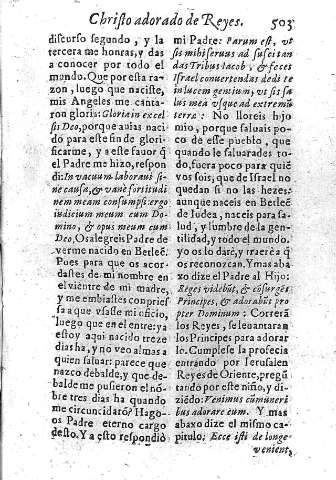 Christo adorado de Reyes. 503
discurso segundo, y la
tercera me honras, y das
a conocer por todo el
mundo. Que por esta ra-
zon, luego que naciste,
mis Angeles me canta-
ron gloria: Gloria in excel
sis Deo, porque auias naci
do para este fin de glori-
ficarme, y a este fauor q̃
el Padre me hizo, respon
di: In vacuum laboraui si-
ne causa, & vanè fortitudi
nem meam consumpsi: ergo
iudicium meum cum Do-
mino, & opus meum cum
Deo, Os alegreis Padre de
verme nacido en Berleẽ.
Pues para que os acor-
dastes de mi nombre en
el vientre de mi madre,
y me embiastes con pries
sa a que vsasse mi oficio,
luego que en el entre: ya
estoy aqui nacido treze
dias ha, y no veo almas a
quien saluar: parece que
nazco debalde, y que de-
balde me pusieron el nõ-
bre tres dias ha quando
me circuncidarõ? Hago-
os Padre eterno cargo
desto. Y a esto respondiò
mi Padre: Parum est, vt
sis mihi seruus ad suscitan
das Tribus Iacob, & feces
Israel conuertendas dedi te
in lucem gentium, vt sis sa
lus mea vsque ad extremũ
terra: No lloreis hijo
mio, porque saluais po-
co de esse pueblo, que
quando le saluarades to-
do, fuera poco para quiẽ
vos sois, que de Israel no
quedan si no las hezes:
aunque naceis en Berleẽ
de Iudea, naceis para sa-
lud, y lumbre de la gen-
tilidad, y todo el mundo.
yo os lo darè, y traerè a q̃
os reconozcan. Y mas aba
xo dize el Padre al Hijo:
Reges videbũt, & cõsurgẽt
Principes, & adorabũt pro
pter Dominum: Correrã
los Reyes, se leuantaran
los Principes para adorar
lo. Cumplese la profecia
entrando por Ierusalen
Reyes de Oriente, pregũ
tando por este niño, y di-
ziẽdo: Venimus cũ muneri
bus adorare eum. Y mas
abaxo dize el mismo ca-
pitulo: Ecce isti de longe
venient,